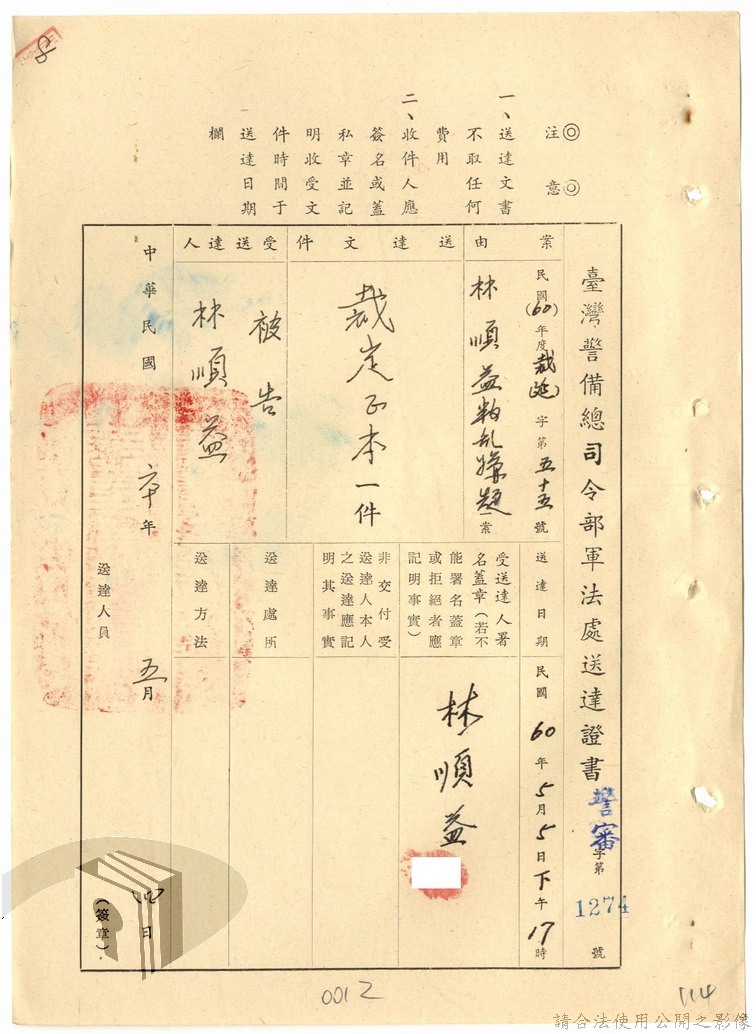 ◎注意◎
一、送達文書
不取任何
費用
二、收件人應
簽名或蓋
私章並記
明收受文
件時間于
送達日期
欄
臺灣警備總司令部軍法處送達證書
警審字第1274號
案由
民國(60)年度裁(延)字第五十五號
林順益叛乱嫌疑一案
送達文件
裁定正本一件
受送達人
被告
林順益
送達日期
民國60年5月5日下午17時
受送達人署
名蓋章(若不
能署名蓋章
或拒絕者應
記明事實)
林順益
非交付受
送達人本人
之送達應記
明其事實
送達處所
送達方法
中華民國六十年五月四日
送達人員
(簽章)
0012
114
請合法使用公開之影像